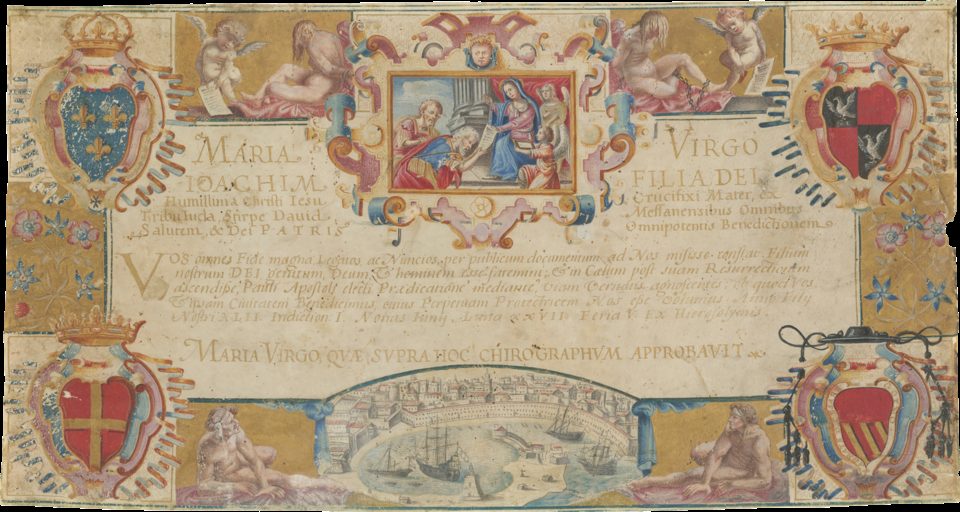 MARIA VIRGO
IOACHIM FILIA DEI
Humillima Christi Iesu Crucifixi Mater, ex
Tribu Iuda, Stirpe David Messanensibus Omnibus
Salutem, & Dei PATRIS Omnipotentis Benedictionem
VOS omnes Fide magna Legatos ac Nuncios, per publicum documentum ad Nos misisse constat, Filium
nostrum DEI genitum, Deum & hominem esse fatemini, & in Cælum post suam Resurrectionem
ascendisse, Pauli Apostoli electi Prædicatione mediante Viam Veritatis agnoscentes, ob quod Vos
& ipsam Civitatem Benedicimus, cuius Perpetuam Protectricem Nos esse Volumus. Anno Filij
Nostri XLII. Indiction I. Nonas Iunij Luna XXVII Feria V. Ex Hierosolymis.
MARIA VIRGO, QVÆ SVPRA HOC CHIROGRAPHVM APPROBAVIT